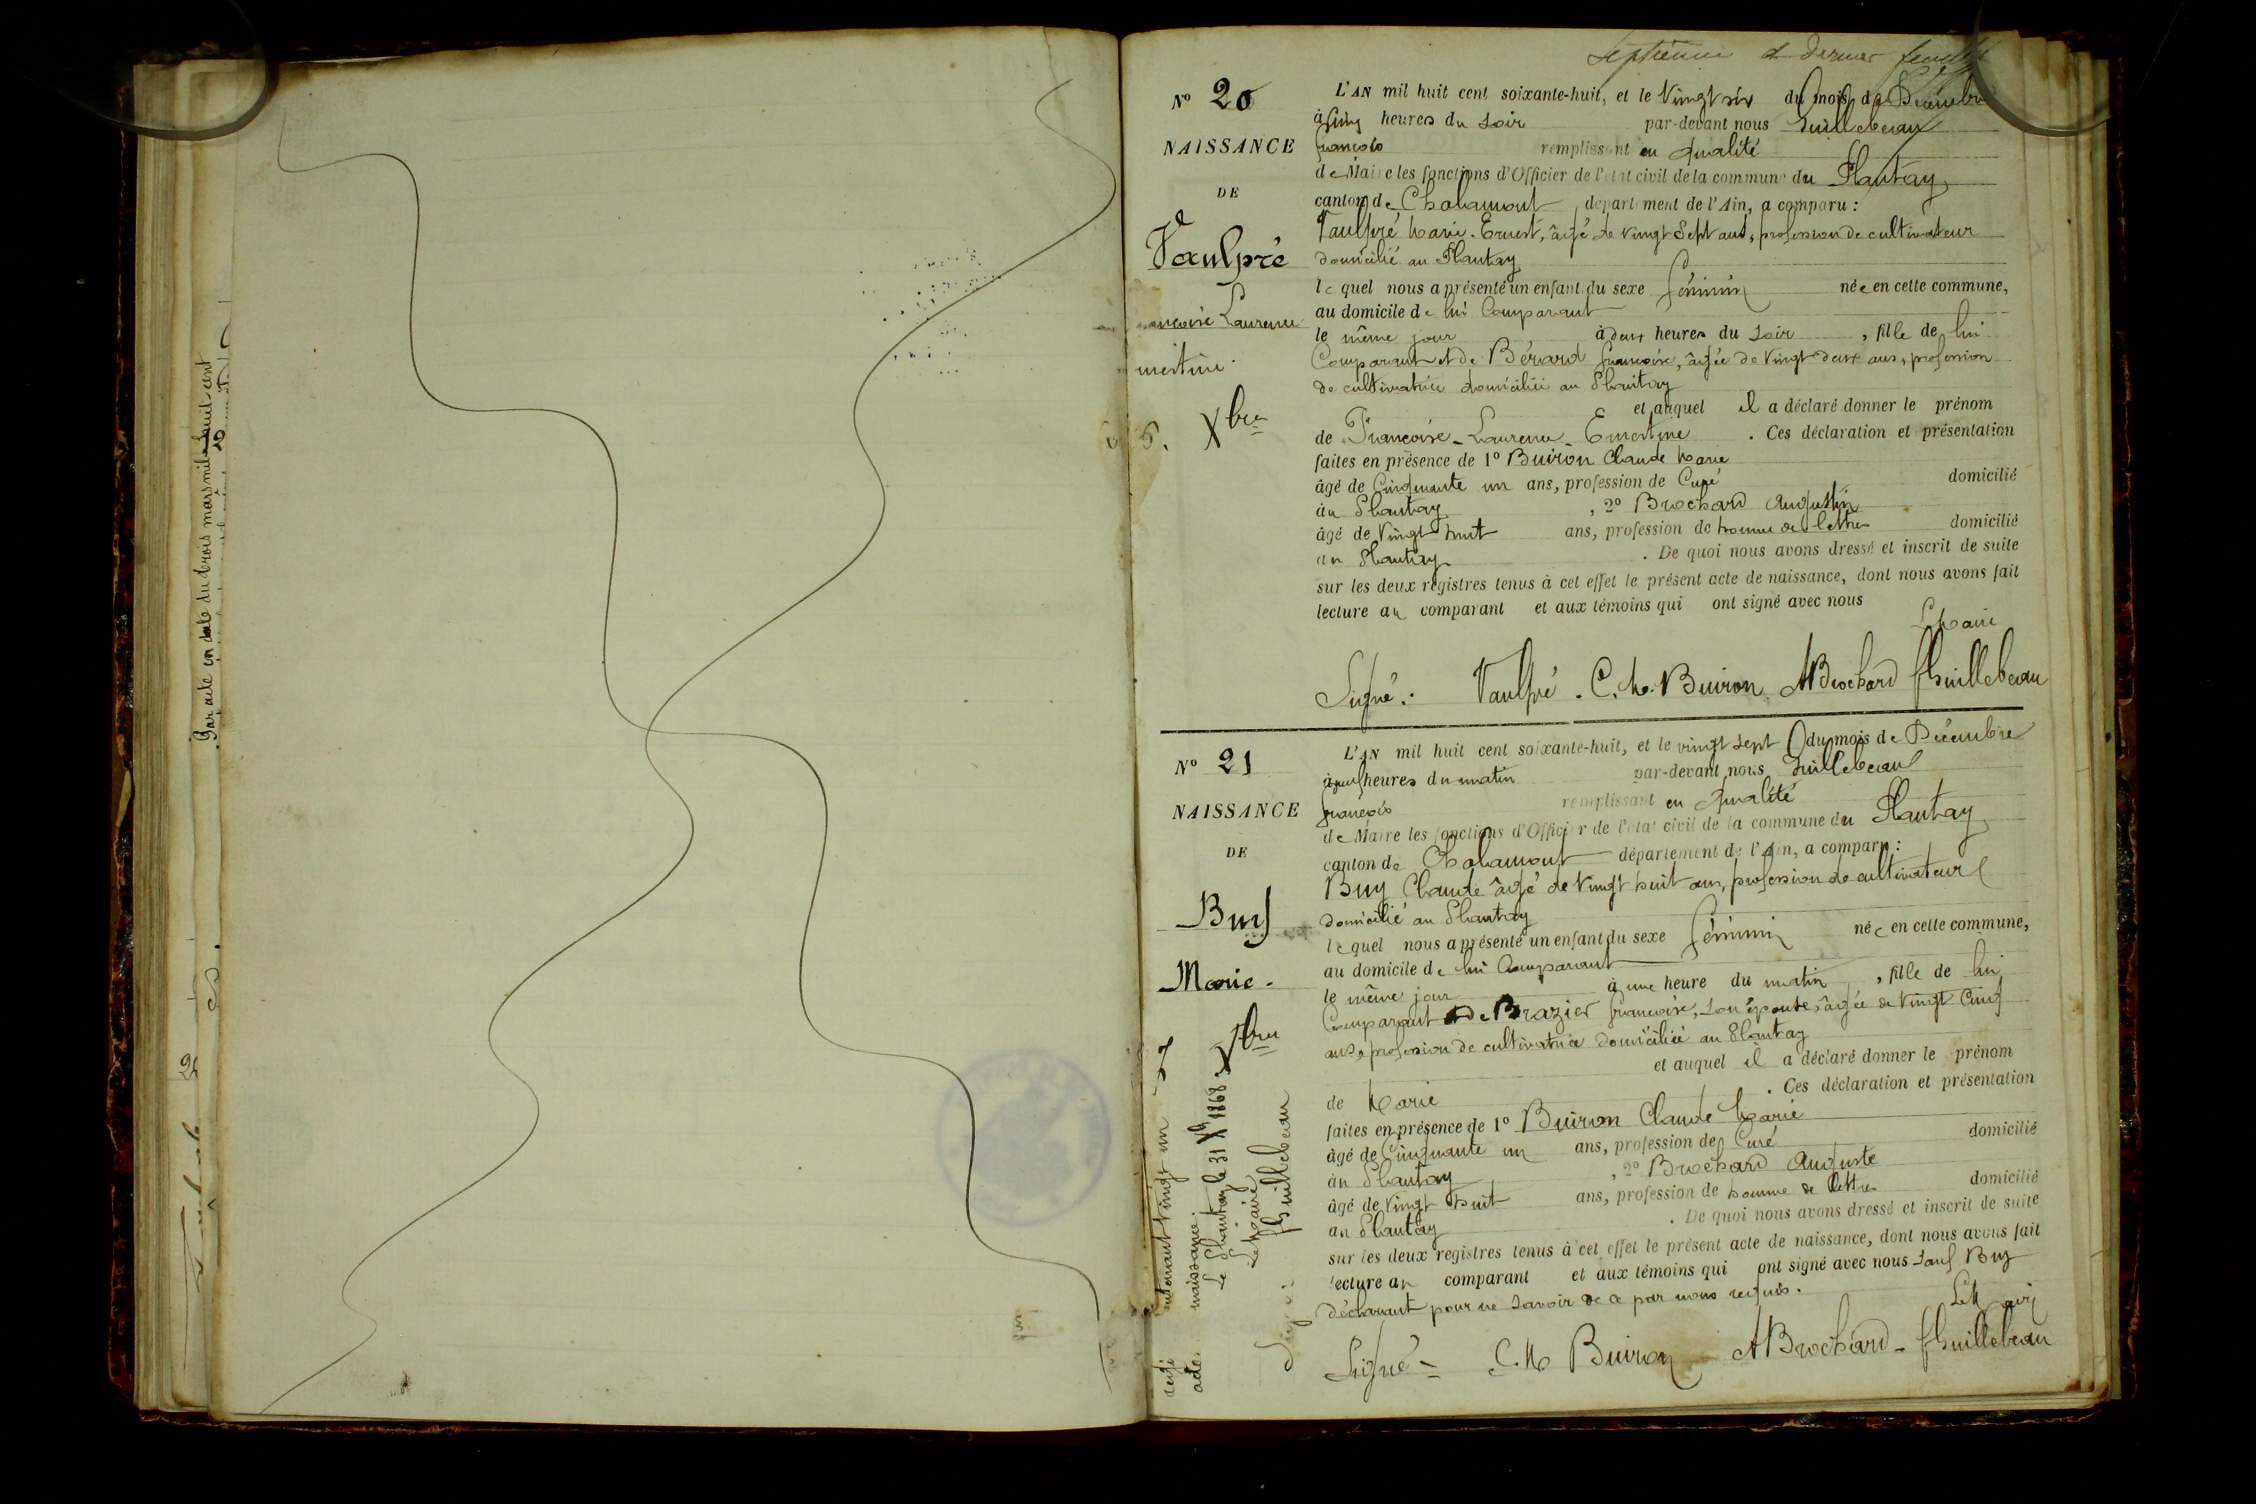 Par acte en date du trois mars mil huit cent
Septième et dernier feuillet
N° 20
NAISSANCE
DE
Vaulpré
Laurence
26. Xbre
L'AN mil huit cent soixante-huit, et le vingt six du mois de Décembre
à cinq heures du soir par-devant nous Guillebeau
françois remplissant en qualité
de Maire les fonctions d'Officier de l'état civil de la commune du Plantay
canton de Chalamont département de l'Ain, a comparu :
Vaulpré Marie-Ernest, âgé de vingt Sept ans, profession de cultivateur
domicilié au Plantay
lequel nous a présenté un enfant du sexe féminin née en cette commune,
au domicile de lui Comparant
le même jour à deux heures du soir , fille de lui
Comparant et de Bérard françoise, âgée de vingt deux ans, profession
de cultivatrice domiciliée au Plantay
et auquel il a déclaré donner le prénom
de Françoise-Laurence-Ernestine . Ces déclaration et présentation
faites en présence de 1° Buiron Claude Marie
âgé de Cinquante un ans, profession de Curé domicilié
au Plantay , 2° Brochard Augustin
âgé de vingt huit ans, profession de homme de lettres domicilié
au Plantay . De quoi nous avons dressé et inscrit de suite
sur les deux registres tenus à cet effet le présent acte de naissance, dont nous avons fait
lecture au comparant et aux témoins qui ont signé avec nous
Le Maire
Signé : Vaulpré . C. M. Buiron ABrochard fGuillebeau
N° 21
NAISSANCE
DE
Buy
Marie.
27 Xbre
L'AN mil huit cent soixante-huit, et le vingt sept du mois de Décembre
à neuf heures du matin par-devant nous Guillebeau
françois remplissant en qualité
de Maire les fonctions d'Officier de l'état civil de la commune du Plantay
canton de Chalamont département de l'Ain, a comparu :
Buy Claude âgé de vingt huit ans, profession de cultivateur
domicilié au Plantay
lequel nous a présenté un enfant du sexe féminin née en cette commune,
au domicile de lui Comparant
le même jour à une heure du matin , fille de lui
Comparant et de Brazier françoise, son épouse, âgée de vingt cinq
ans, profession de cultivatrice domiciliée au Plantay
et auquel il a déclaré donner le prénom
de Marie . Ces déclaration et présentation
faites en présence de 1° Buiron Claude Marie
âgé de Cinquante un ans, profession de Curé domicilié
au Plantay , 2° Brochard Auguste
âgé de vingt huit ans, profession de homme de lettres domicilié
au Plantay . De quoi nous avons dressé et inscrit de suite
sur les deux registres tenus à cet effet le présent acte de naissance, dont nous avons fait
lecture au comparant et aux témoins qui ont signé avec nous sauf Buy
déclarant pour ne savoir de ce par nous requis.
Le Maire
Signé = C. M Buiron ABrochard - fGuillebeau
contenant vingt un
actes naissance.
Le Plantay, le 31 Xbre 1868
Le Maire
Signé : fGuillebeau